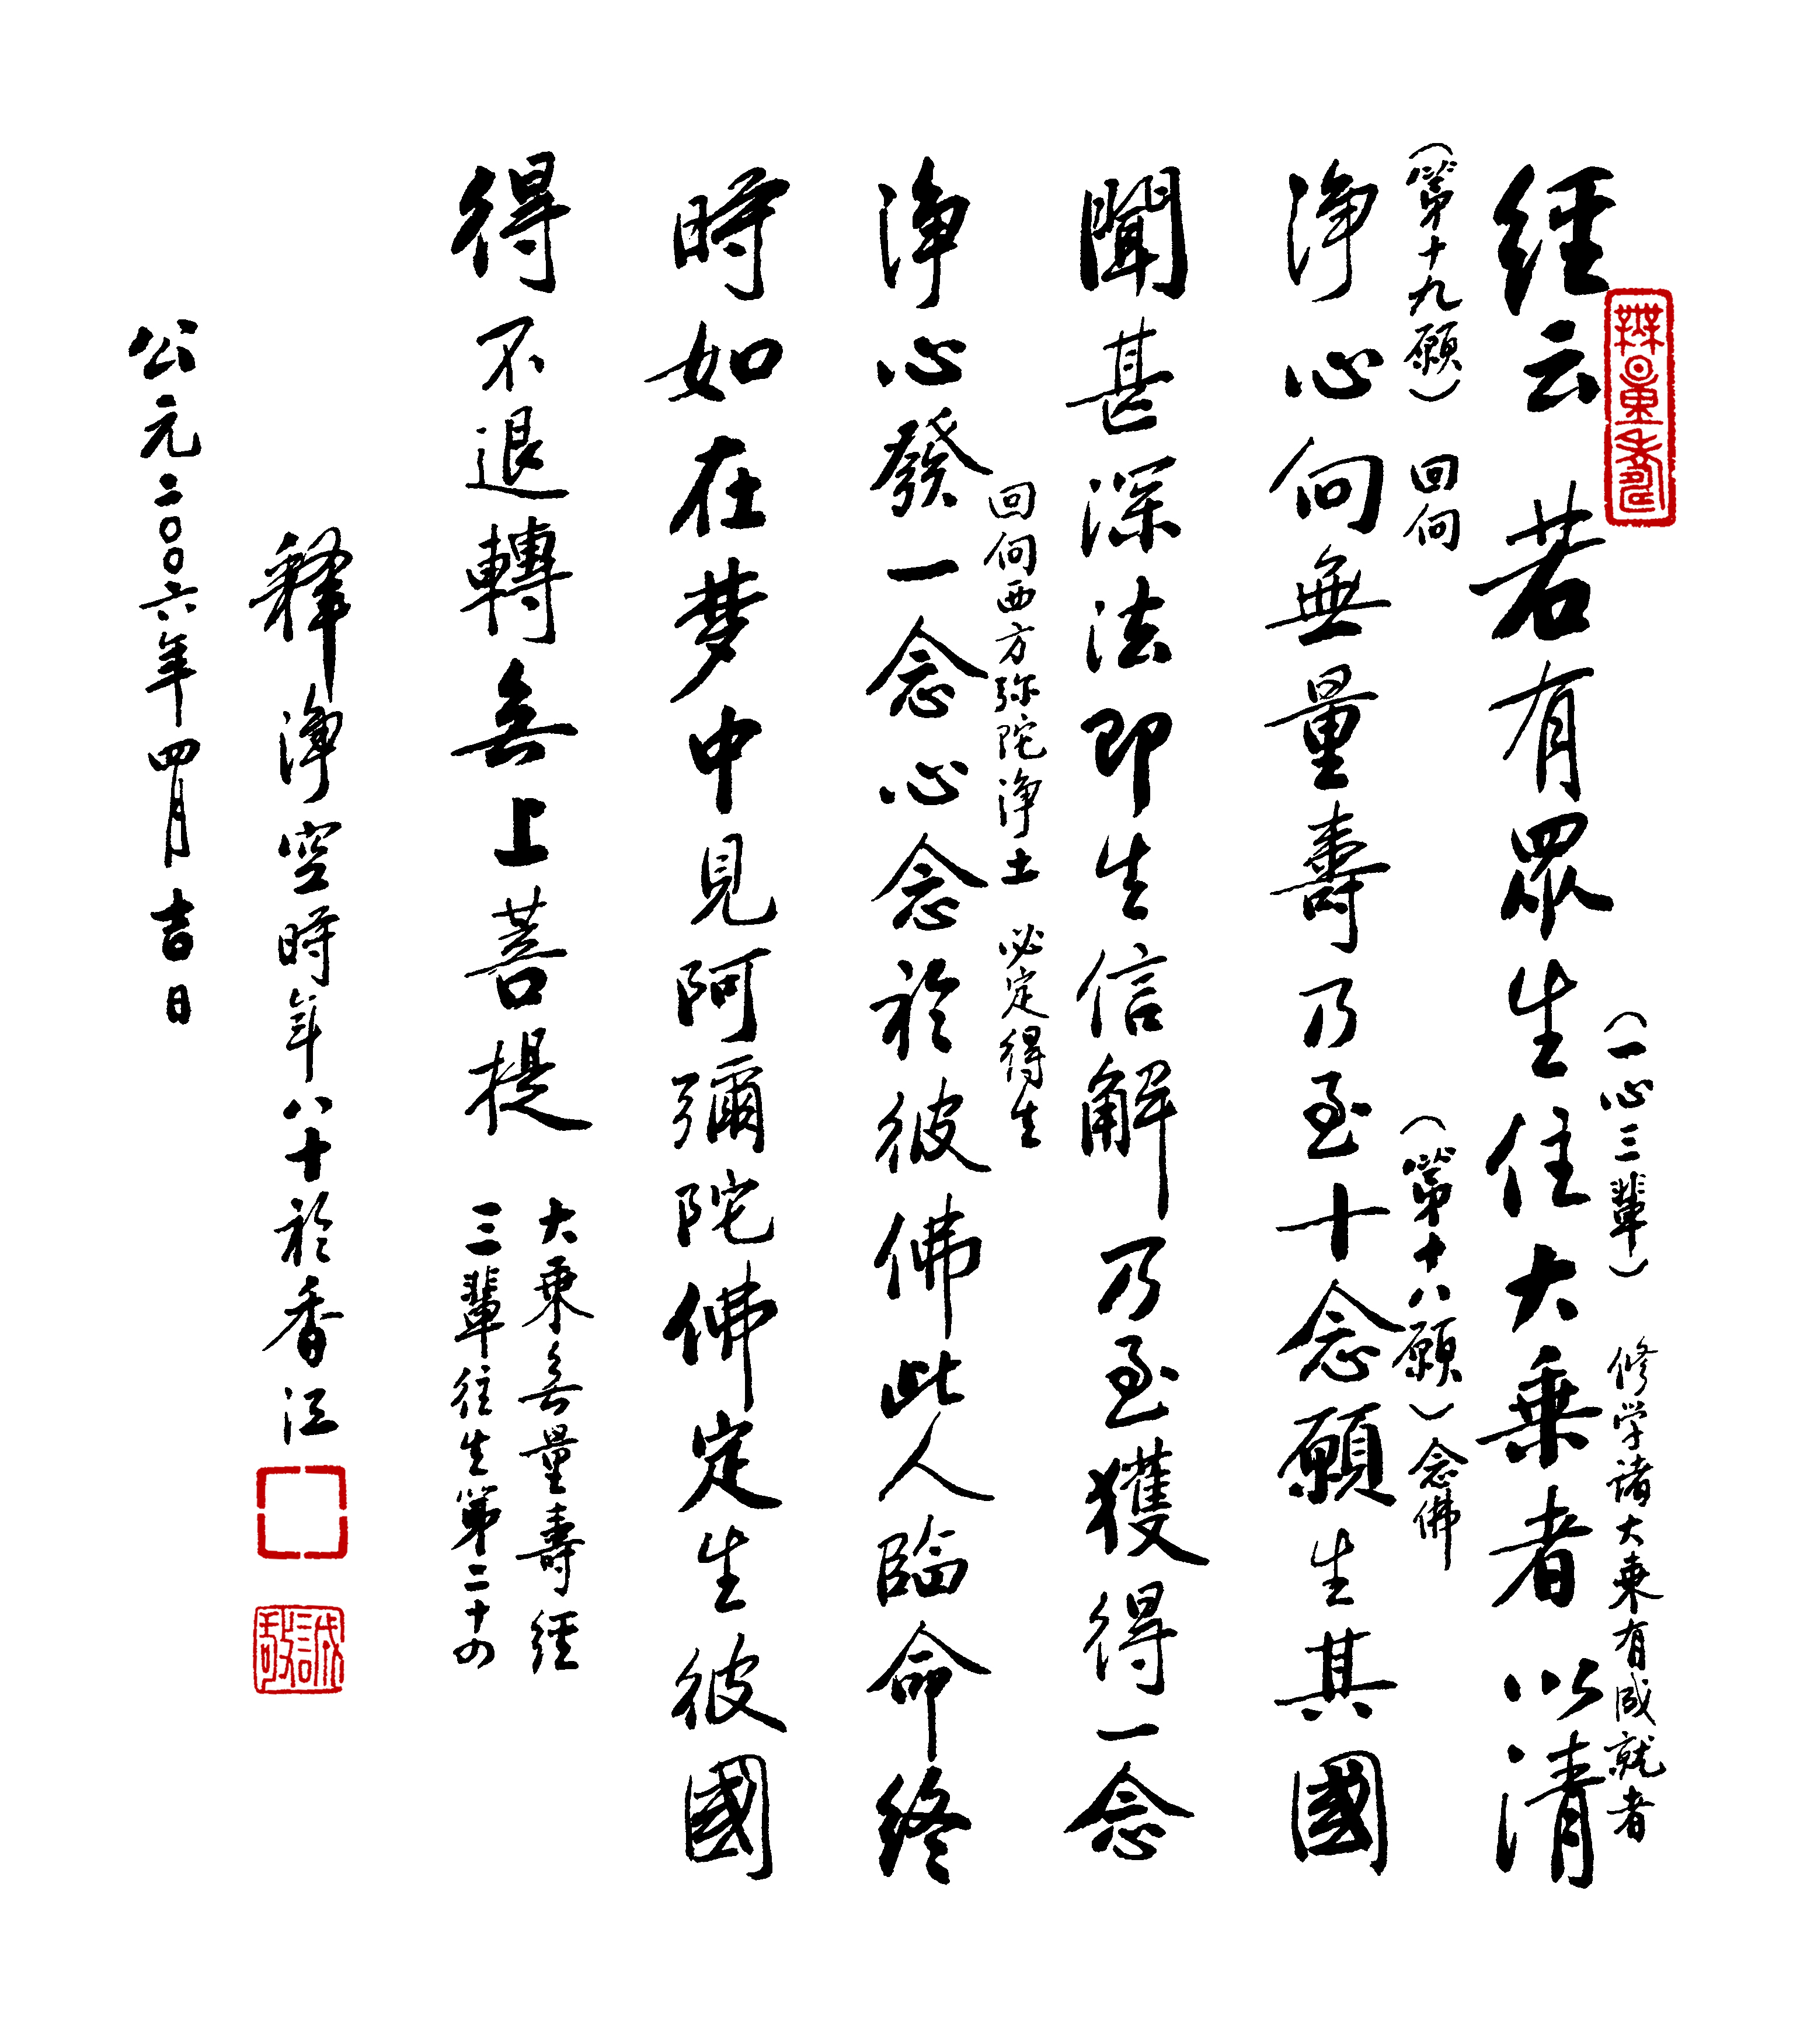 無量壽
(一心三輩) 修学诸大乘有成就者
經云 若有眾生住大乘者以清
(第十九願) 回向 (第十八願) 念佛
淨心向無量壽乃至十念願生其國
聞甚深法即生信解乃至獲得一念
回向西方弥陀淨土 必定得生
淨心發一念心念於彼佛此人臨命終
時如在梦中見阿彌陀佛定生彼國
得不退轉无上菩提
大乘无量壽經
三輩往生第二十四
释淨空時年八十於香江
誠敬
公元二〇〇六年四月吉日